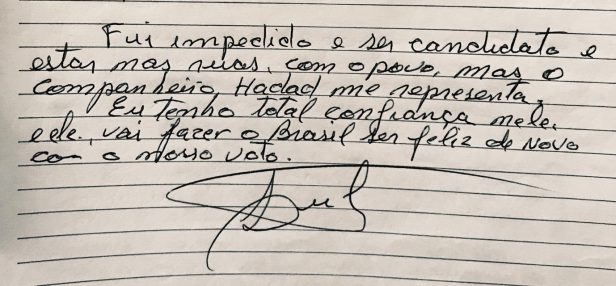 Fui impedido e ser candidato e
estar nas ruas, com o povo, mas o
Companheiro, Hadad me representa,
Eu tenho total confiança nele,
e ele, vai fazer o Brasil ser feliz de Novo
com o nosso voto.
Lula